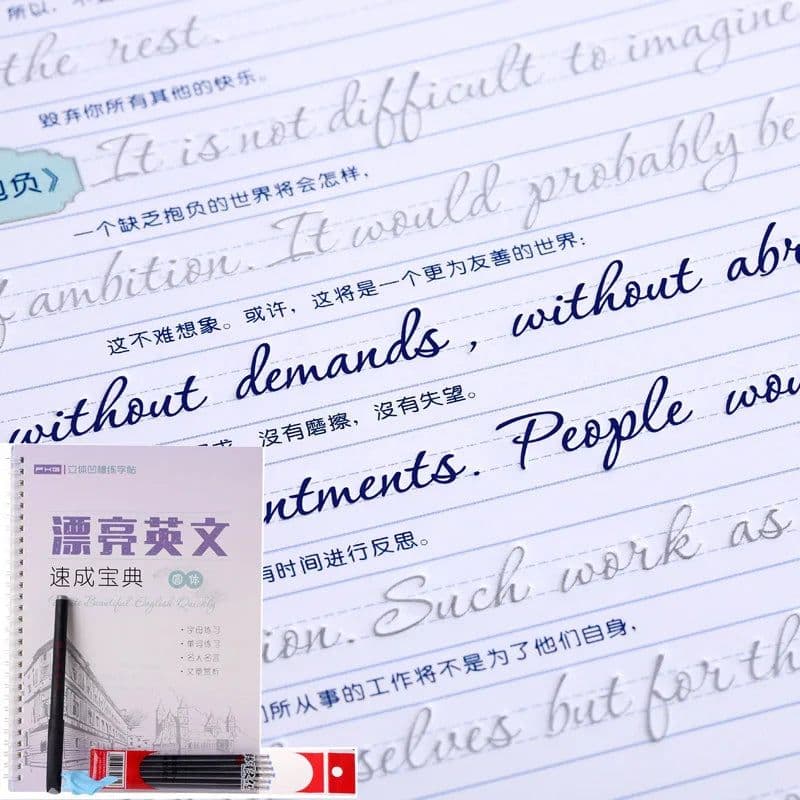 所以，
the rest.
毁弃你所有其他的快乐。
It is not difficult to imagine
抱负》
一个缺乏抱负的世界将会怎样，
f ambition. It would probably be
这不难想象。或许，这将是一个更为友善的世界：
without demands , without abr
沒有磨擦，沒有失望。
ntments. People wou
有时间进行反思。
ion. Such work as
所从事的工作将不是为了他们自身，
selves but for th
立体凹槽练字帖
漂亮英文
速成宝典
圆体
Write Beautiful English Quickly
·字母练习
·单词练习
·名人名言
·文章赏析